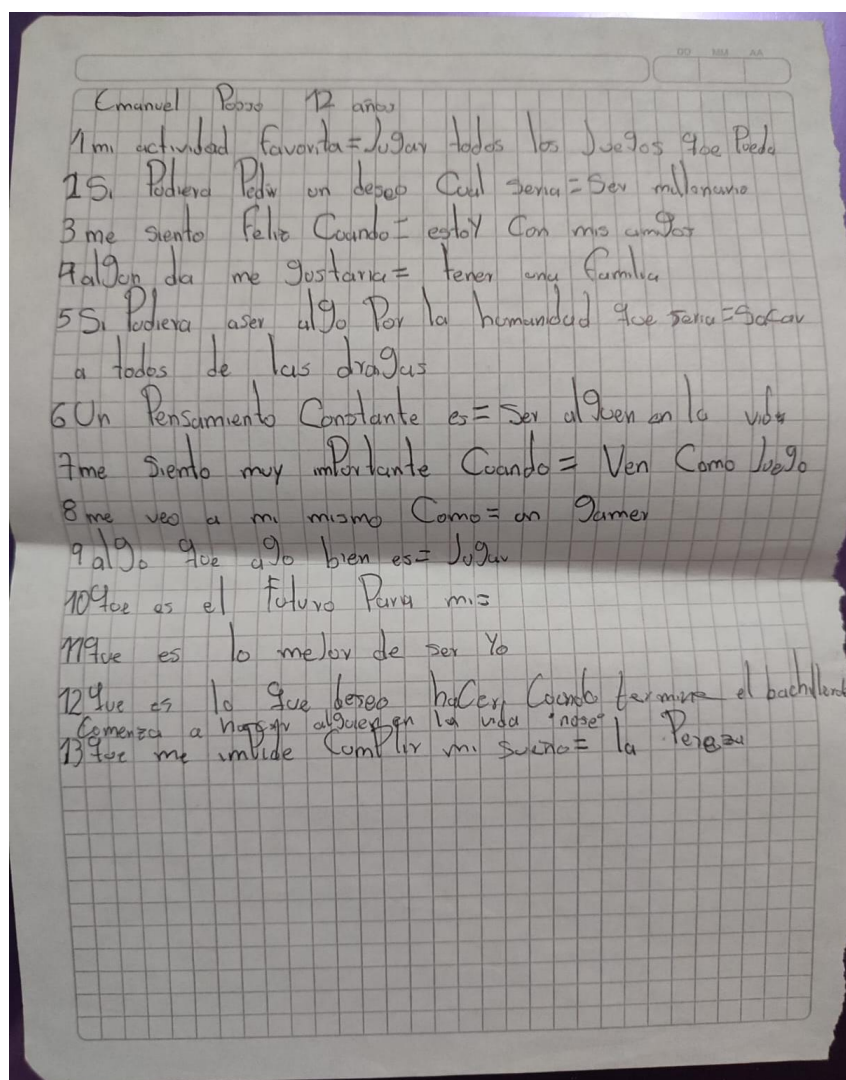 DD MM AA
Emanuel 12 años
1 mi actividad favorita = Jugar todos los Juegos que Pueda
2 Si Pudiera Pedir un deseo Cual seria = Ser millonario
3 me siento Feliz Cuando = estoy Con mis amigos
4 algun dia me gustaria = tener una familia
5 Si Pudiera aser algo Por la humanidad que seria = Sacar
a todos de las drogas
6 Un Pensamiento Constante es = Ser alguen en la vida
7 me siento muy importante Cuando = Ven Como Juego
8 me veo a mi mismo Como = un gamer
9 algo que ago bien es = Jugar
10 que es el futuro Para mi =
11 que es lo mejor de ser Yo
12 que es lo que deseo haCer Cuando termine el
Comenza a alguien en la vida "nose"
13 que me impide Cumplir mi sueño = la Pereza